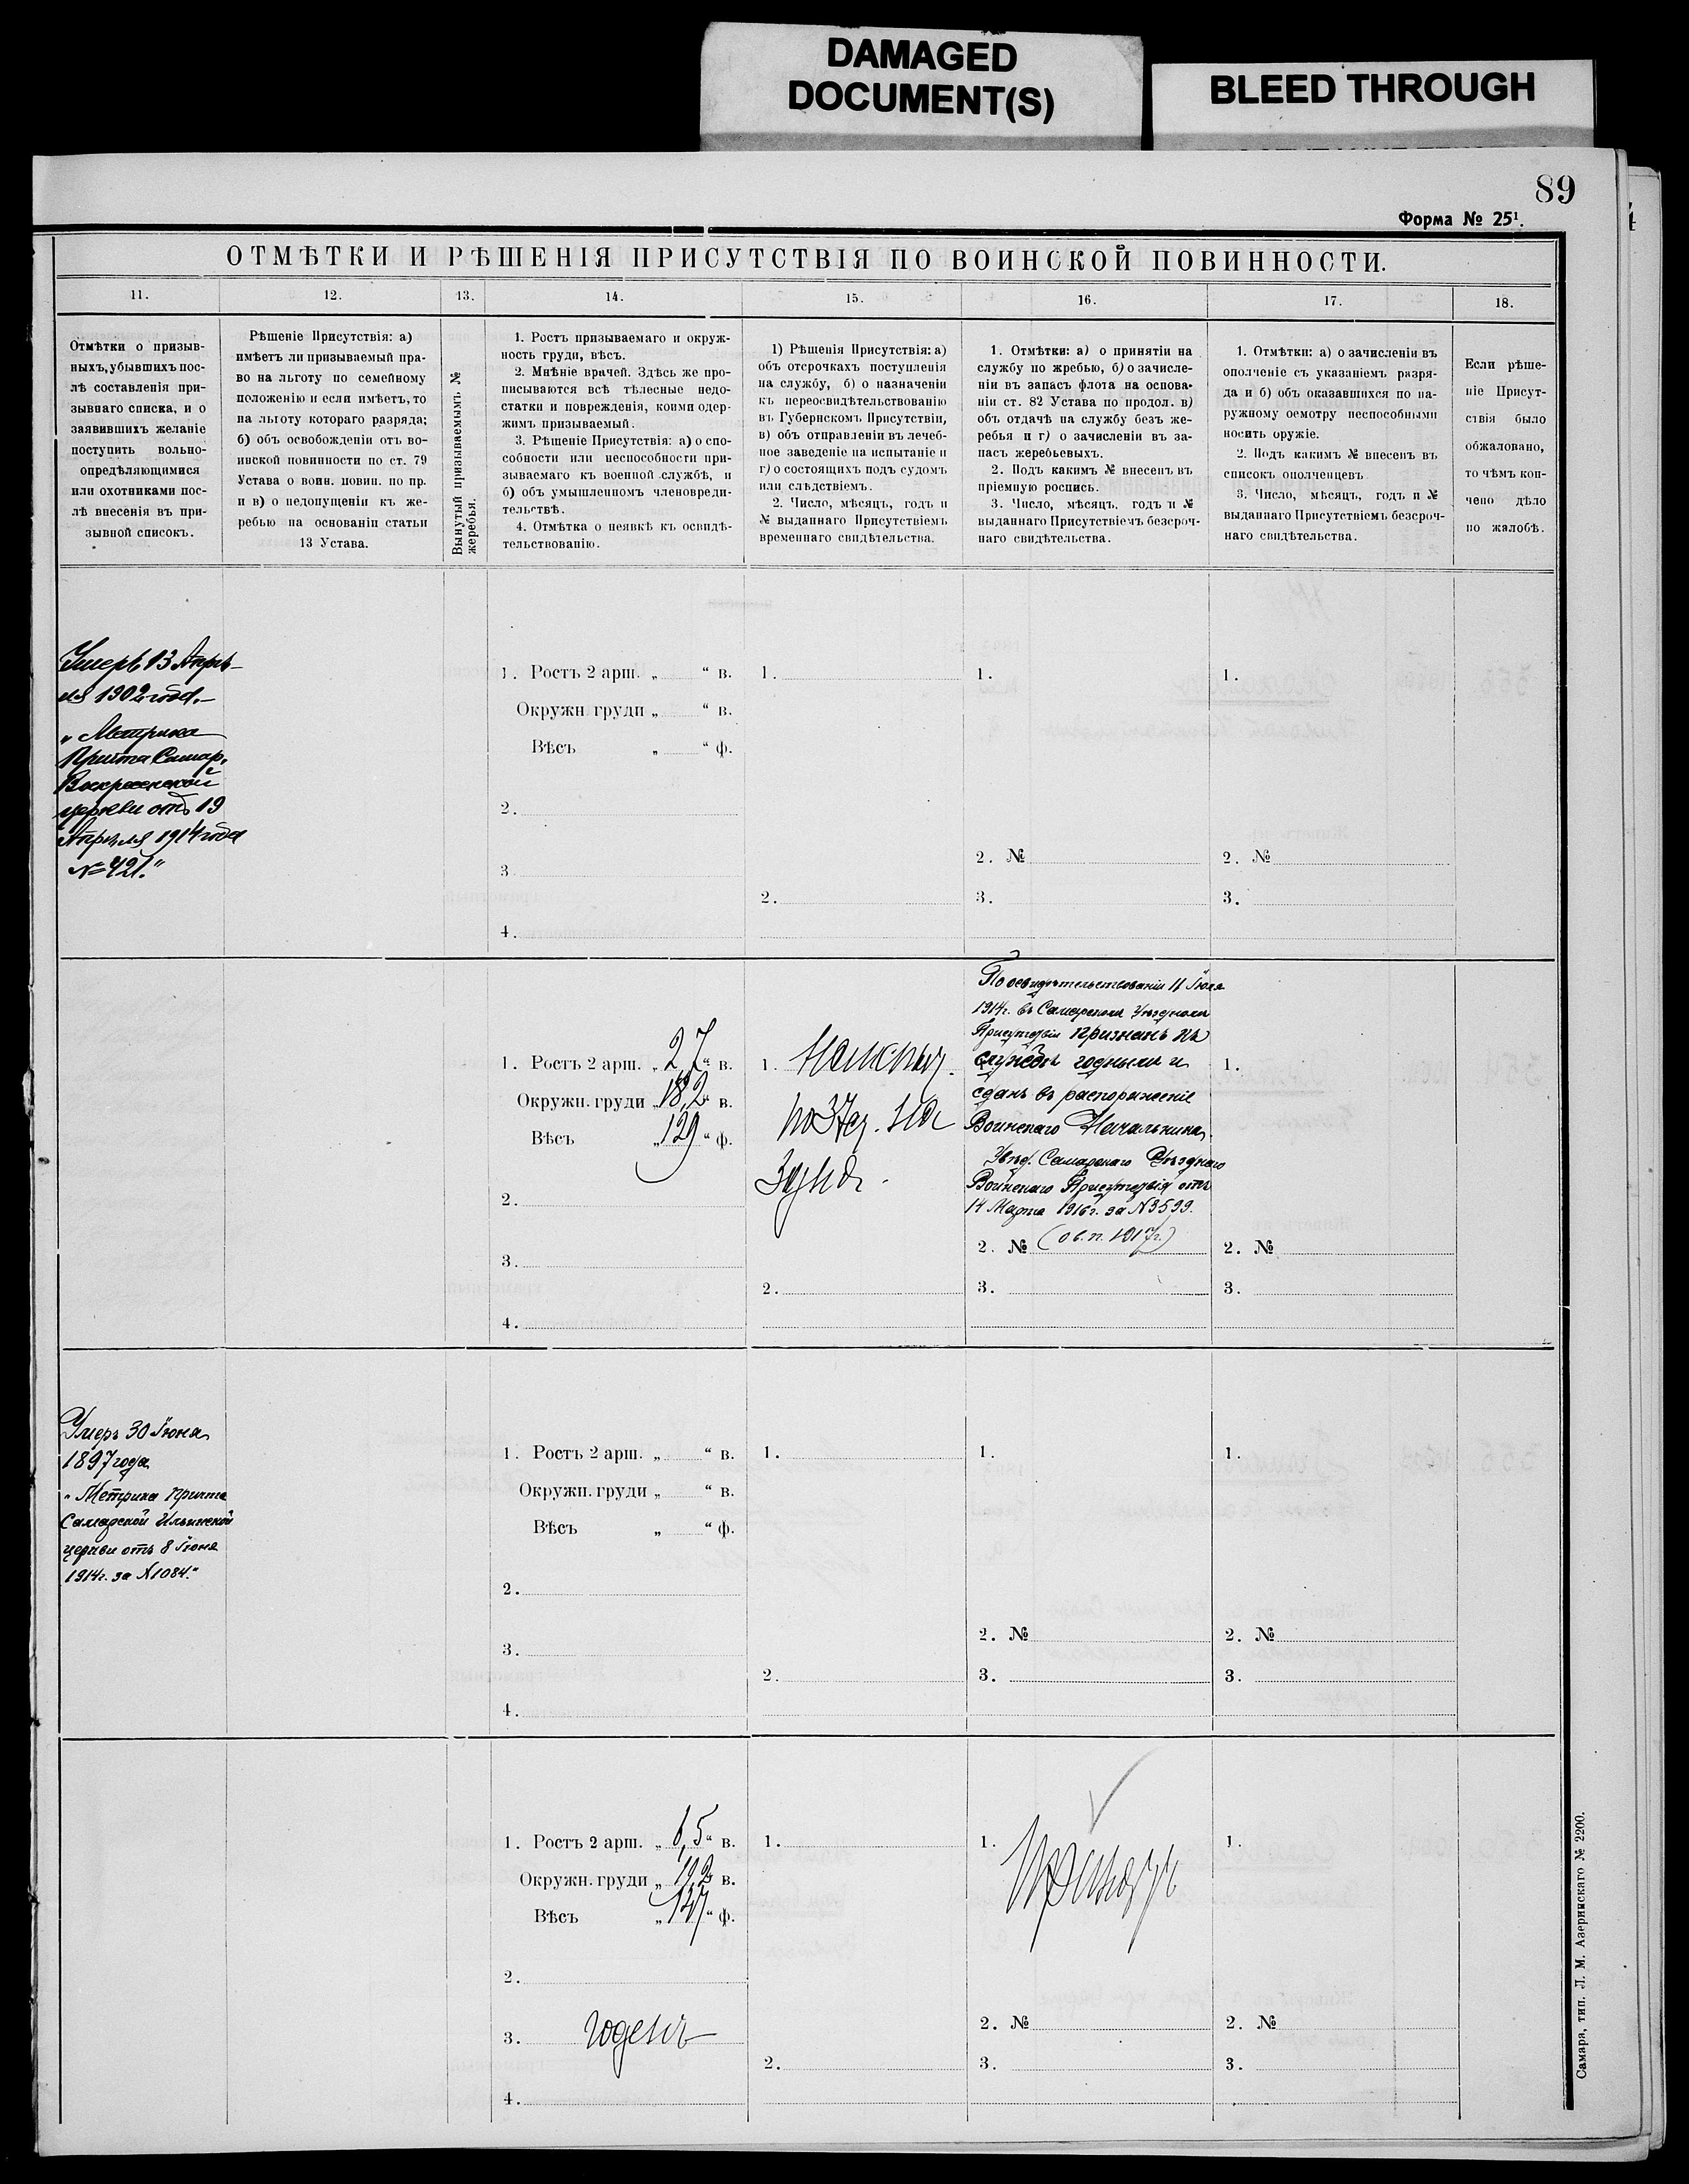 DAMAGED
DOCUMENT(S)
BLEED THROUGH
89
Форма № 25¹.
ОТМѢТКИ И РѢШЕНІЯ ПРИСУТСТВІЯ ПО ВОИНСКОЙ ПОВИННОСТИ.
11. 12. 13. 14. 15. 16. 17. 18.
Отмѣтки о призыв-
ныхъ, убывшихъ пос-
лѣ составленія при-
зывнаго списка, и о
заявившихъ желаніе
поступить вольно-
опредѣляющимися
или охотниками пос-
лѣ внесенія въ при-
зывной списокъ.
Рѣшеніе Присутствія: а)
имѣетъ ли призываемый пра-
во на льготу по семейному
положенію и если имѣетъ, то
на льготу котораго разряда;
б) объ освобожденіи отъ во-
инской повинности по ст. 79
Устава о воин. повин. по пр.
и в) о недопущеніи къ же-
ребью на основаніи статьи
13 Устава.
Вынутый призываемымъ №
жеребья.
1. Ростъ призываемаго и окруж-
ность груди, вѣсъ.
2. Мнѣніе врачей. Здѣсь же про-
писываются всѣ тѣлесные недо-
статки и поврежденія, коими одер-
жимъ призываемый.
3. Рѣшеніе Присутствія: а) о спо-
собности или неспособности при-
зываемаго къ военной службѣ, и
б) объ умышленномъ членовреди-
тельствѣ.
4. Отмѣтка о неявкѣ къ освидѣ-
тельствованію.
1) Рѣшенія Присутствія: а)
объ отсрочкахъ поступленія
на службу, б) о назначеніи
къ переосвидѣтельствованію
въ Губернскомъ Присутствіи,
в) объ отправленіи въ лечеб-
ное заведеніе на испытаніе и
г) о состоящихъ подъ судомъ
или слѣдствіемъ.
2. Число, мѣсяцъ, годъ и
№ выданнаго Присутствіемъ
временнаго свидѣтельства.
1. Отмѣтки: а) о принятіи на
службу по жребью, б) о зачисле-
ніи въ запасъ флота на основа-
ніи ст. 82 Устава по продол. в)
объ отдачѣ на службу безъ же-
ребья и г) о зачисленіи въ за-
пасъ жеребьевыхъ.
2. Подъ какимъ № внесенъ въ
пріемную роспись.
3. Число, мѣсяцъ, годъ и №
выданнаго Присутствіемъ безсроч-
наго свидѣтельства.
1. Отмѣтки: а) о зачисленіи въ
ополченіе съ указаніемъ разря-
да и б) объ оказавшихся по на-
ружному осмотру неспособными
носить оружіе.
2. Подъ какимъ № внесенъ въ
списокъ ополченцевъ
3. Число, мѣсяцъ, годъ и №
выданнаго Присутствіемъ безсроч-
наго свидѣтельства.
Если рѣше-
ніе Присут-
ствія было
обжаловано,
то чѣмъ кон-
чено дѣло
по жалобѣ.
Умеръ 13 Апрѣ-
ля 1902 года.
„Метрика
Причта Самар.
Воскресенской
церкви отъ 19
Апрѣля 1914 года
№ 421."
1. Ростъ 2 арш. „ “ в.
Окружн. груди „ “ в.
Вѣсъ „ “ ф.
2.
3
4.
1.
2.
1.
2. №
3.
1.
2. №
3.
1. Ростъ 2 арш. „ 2,7 “ в.
Окружн. груди „ 18,2 “ в.
Вѣсъ „ 129 “ ф.
2.
3.
4.
1.
2.
По освидѣтельствованіи 11 Іюля
1914г. въ Самарскомъ Уѣздномъ
Присутствіи признанъ къ
службѣ годнымъ и
сданъ въ распоряженіе
Воинскаго Начальника.
Увѣд. Самарскаго Уѣзднаго
Воинскаго Присутствія отъ
14 Марта 1916г. за № 3599.
2. № (о в.п. 1917г.)
3.
1.
2. №
3.
Умеръ 30 Іюня
1897 года
„Метрика Причта
Самарской Ильинской
церкви отъ 8 Іюня
1914г. за № 1084."
1. Ростъ 2 арш. „ “ в.
Окружн. груди „ “ в.
Вѣсъ „ “ ф.
2.
3.
4.
1.
2.
1.
2. №
3.
1.
2. №
3.
1. Ростъ 2 арш. „ 6,5 “ в.
Окружн. груди „ 19,2 “ в.
Вѣсъ „ 147 “ ф.
2.
3. годенъ
4.
1.
2.
1. Принятъ
2. №
3.
1.
2. №
3.
Самара, тип. Л. М. Азеринскаго № 2200.